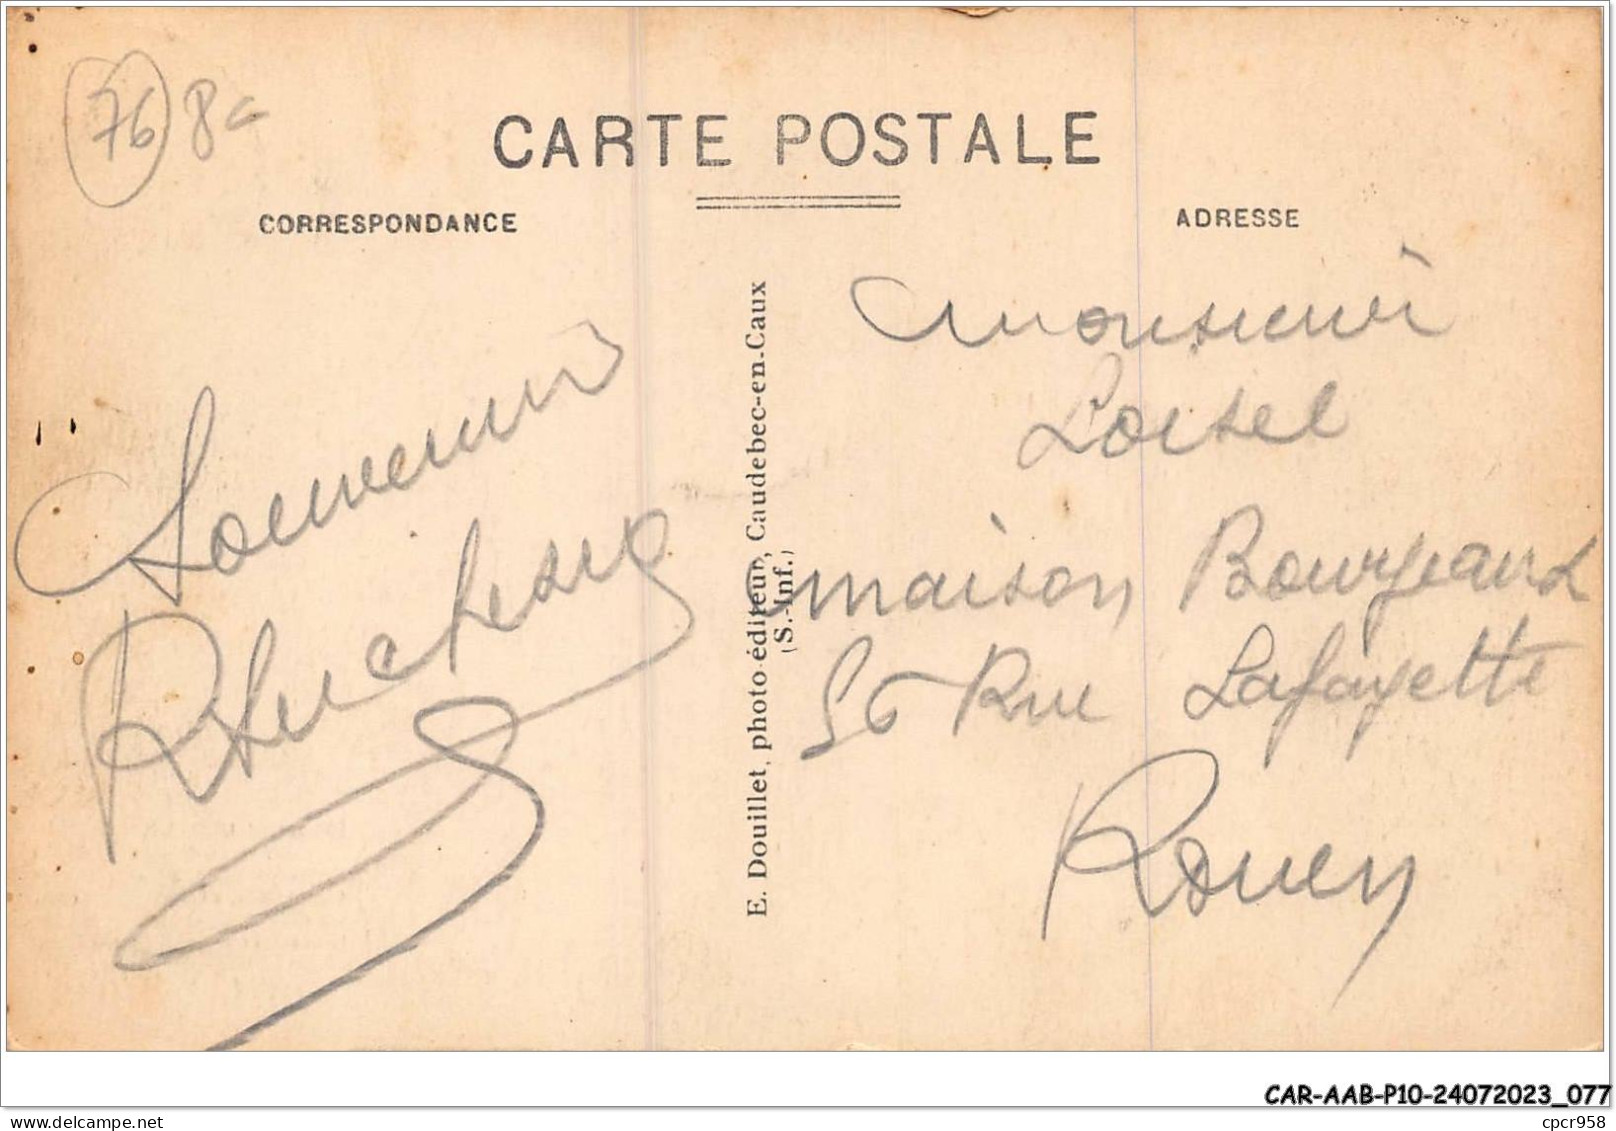 76 8c
CARTE POSTALE
CORRESPONDANCE
ADRESSE
Souvenir
E. Douillet, photo-éditeur, Caudebec-en-Caux
(S.-Inf.)
Monsieur
Loisel
maison Bourgeaux
56 Rue Lafayette
Rouen
CAR-AAB-P10-24072023_077
cpcr958